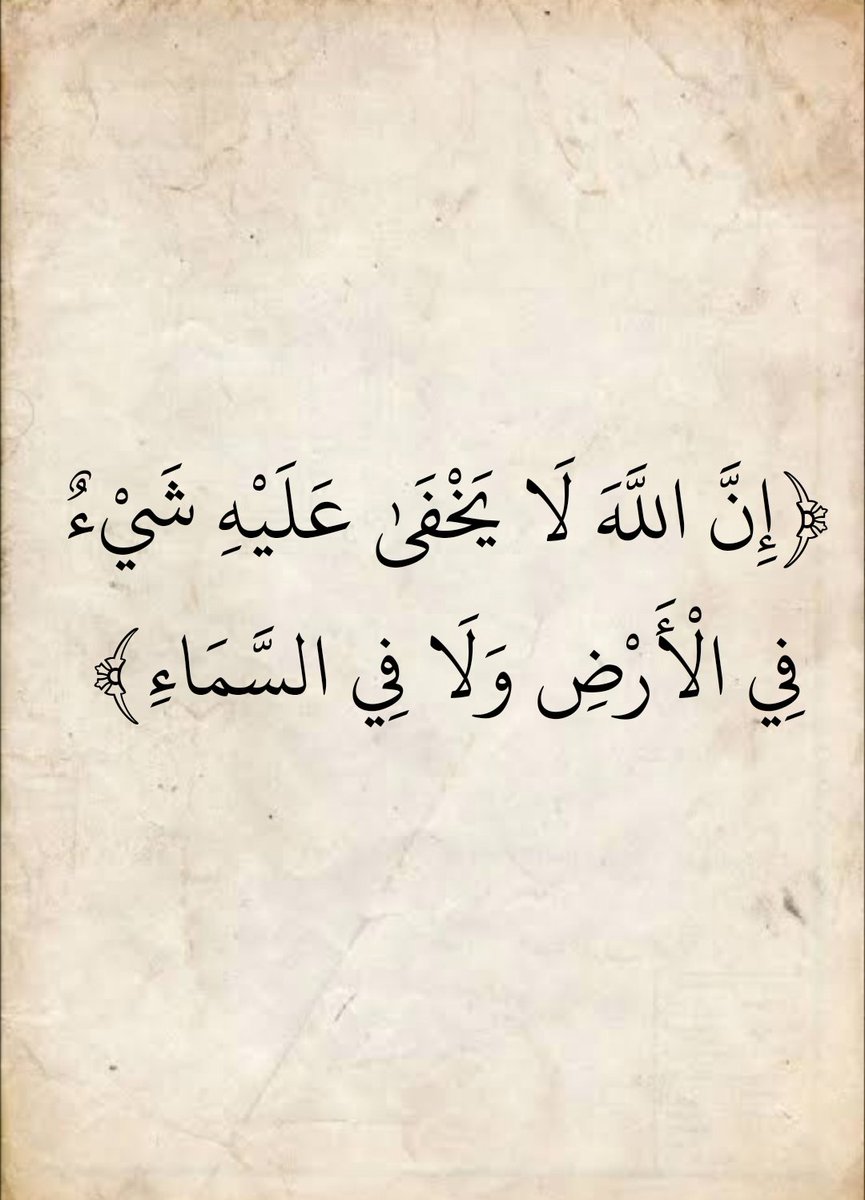 ﴿إِنَّ اللَّهَ لَا يَخْفَىٰ عَلَيْهِ شَيْءٌ
فِي الْأَرْضِ وَلَا فِي السَّمَاءِ﴾